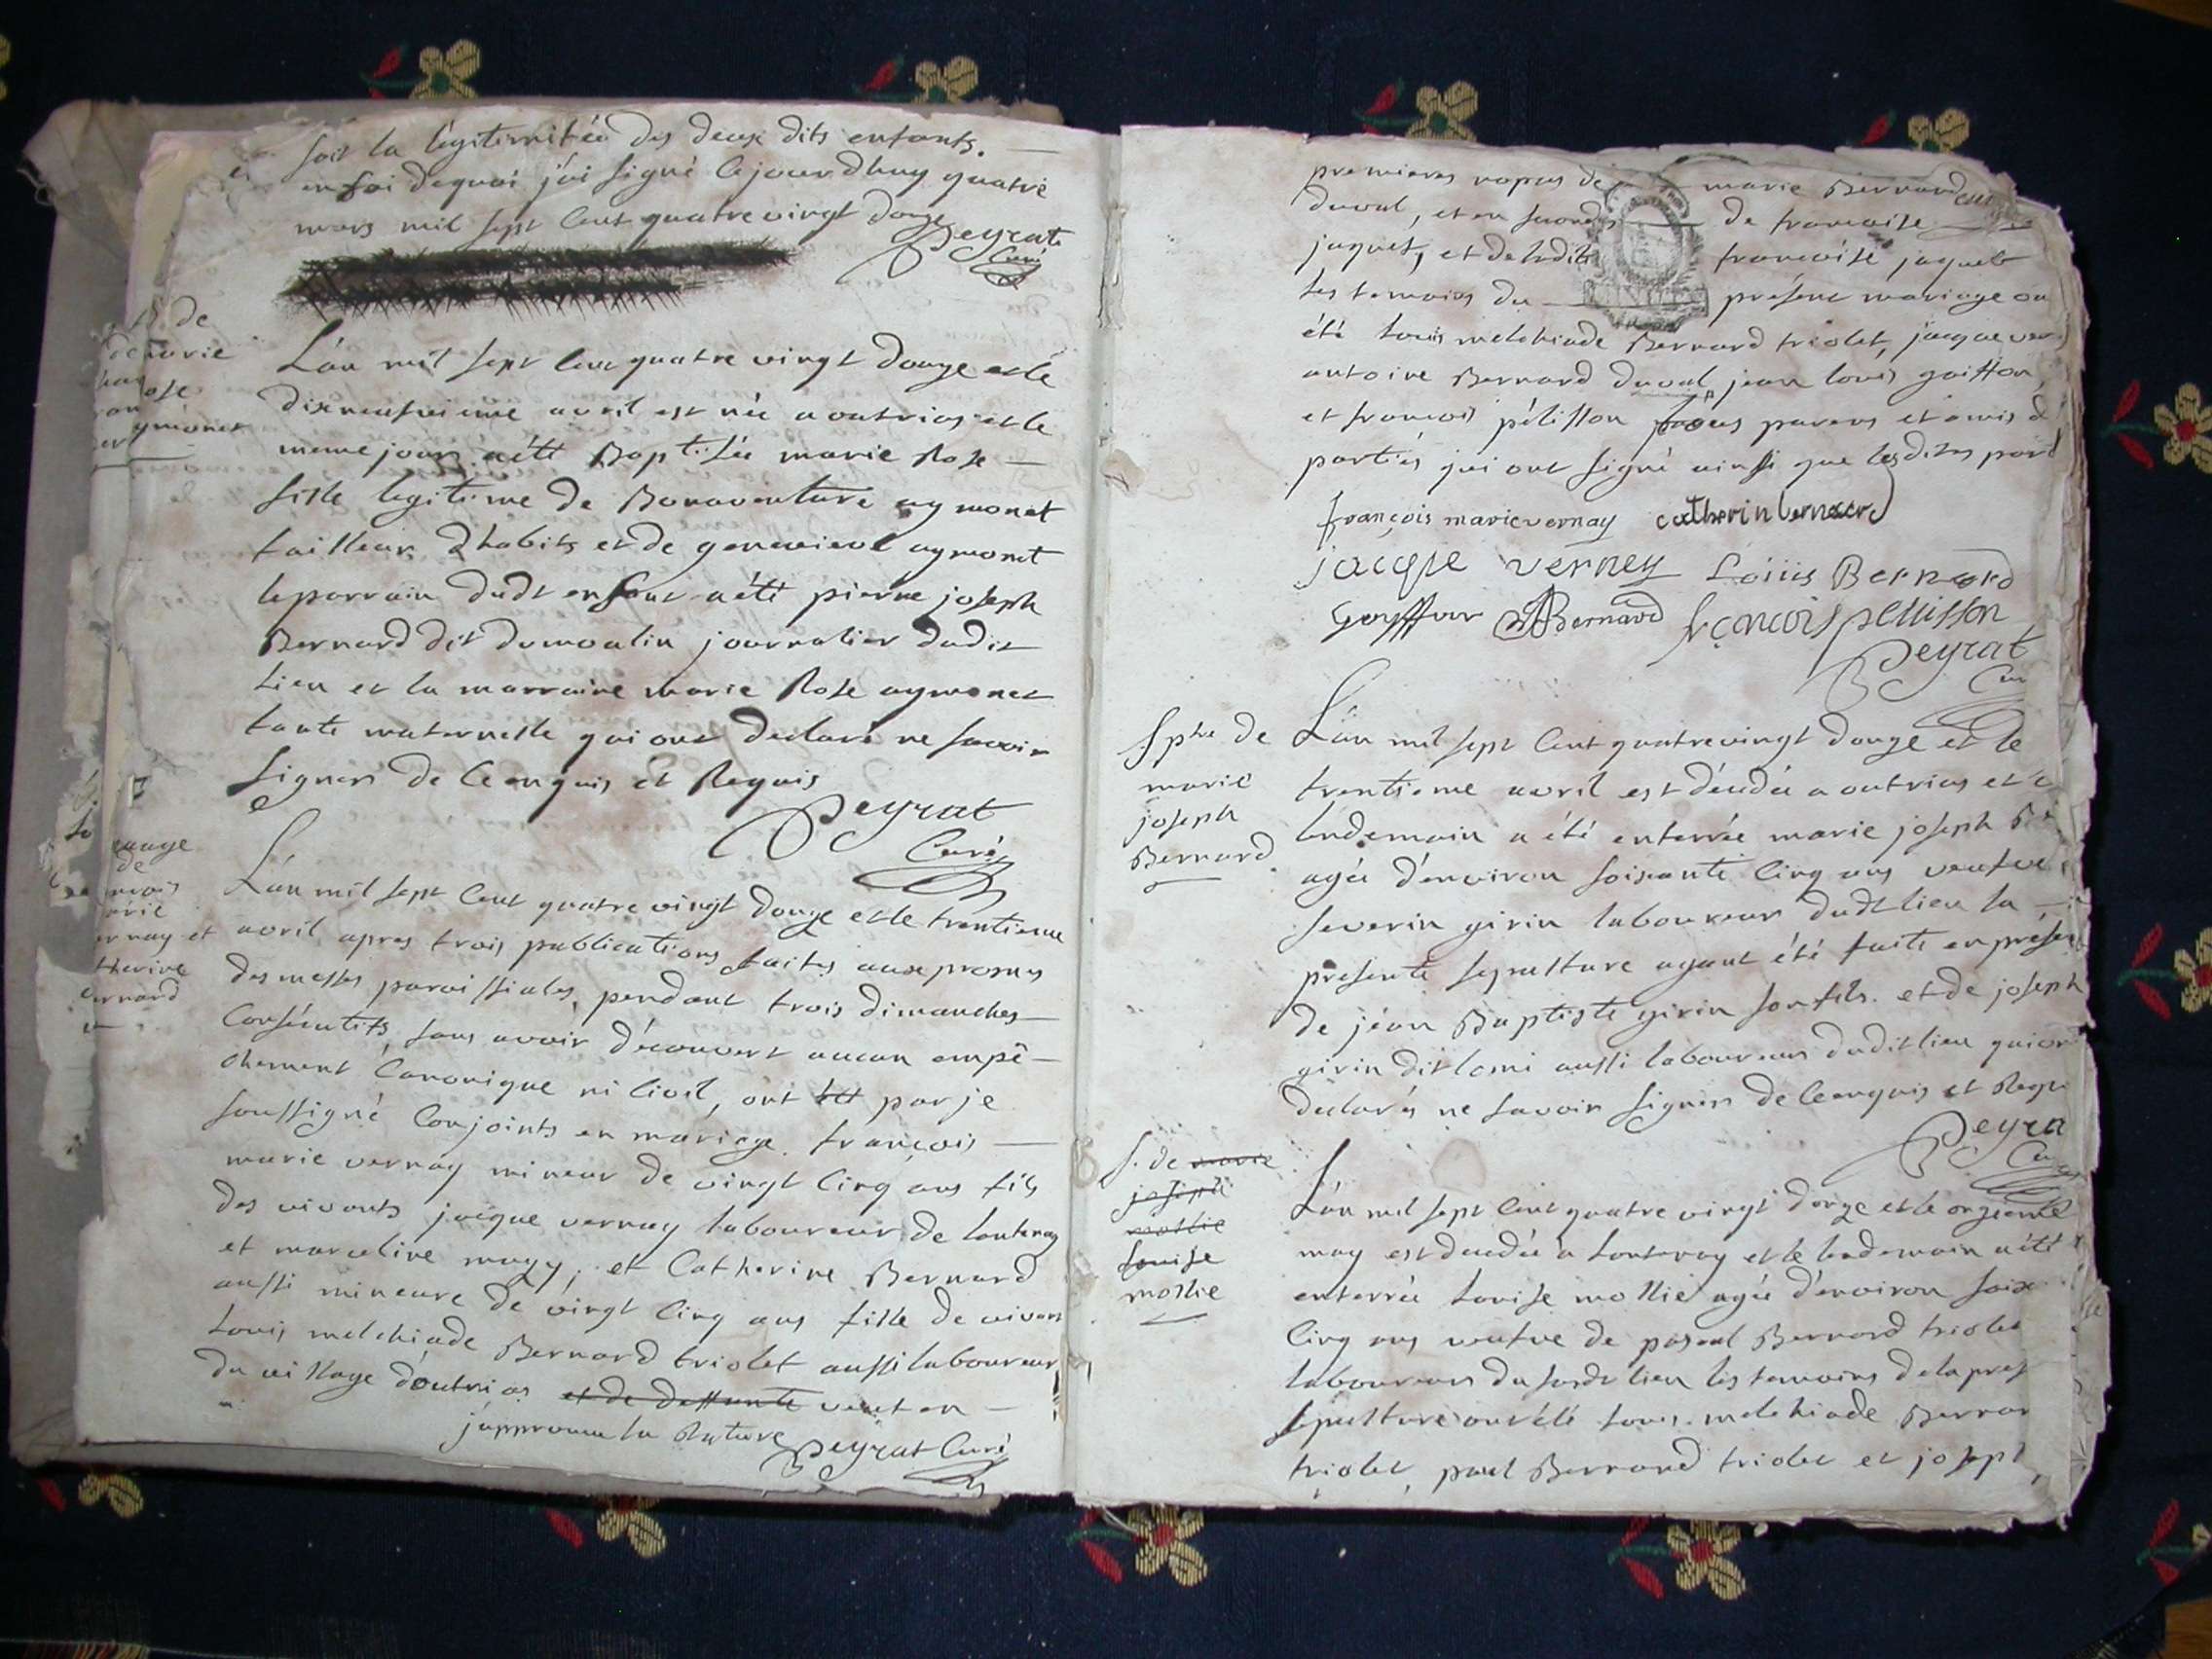 soit la légitimitée des deux dits enfants.
en foi dequoi j'ai signé cejourdhuy quatrie
mars mil sept cent quatre vingt douze
Peyrat
Curé
B. de
marie
Rose
aymonet
L'an mil sept cent quatre vingt douze et le
dixneufvieme avril est née a outrias et le
meme jour a été Baptisée marie Rose
fille legitime de Bonaventure aymonet
tailleur d'habits et de genevieve aymonet
le parrain dudt enfant a été pierre joseph
Bernard dit dumoulin journalier dudit
lieu et la marraine marie Rose aymonet
tante maternelle qui ont declaré ne savoir
signer de ce enquis et Requis
Peyrat
Curé
de
L'an mil sept cent quatre vingt douze et le trentieme
avril apres trois publications faites aux prosnes
des messes paroissiales, pendant trois dimanches
Consécutifs, sans avoir découvert aucun empê-
chement Canonique ni Civil, ont par je
soussigné Conjoints en mariage. françois
marie vernay mineur de vingt cinq ans fils
des vivants jacque vernay laboureur de lantenay
et marceline mugy; et Catherine Bernard
aussi mineure de vingt cinq ans fille de vivant
Louis melchiade Bernard triolet aussi laboureur
du village d'outrias et de deffunte veuf en
j'approuve la Rature
Peyrat Curé
premieres nopces de marie Bernard
duval, et en secondes de francoise
jaquet, et de ladite francoise jaquet
les temoins du présent mariage on
été Louis melchiade Bernard triolet, jacque ver
antoine Bernard duval, jean louis goiffon
et francois pélisson tous parens et amis d
parties qui ont signé ainsi que lesdites part
françois marie vernay catherin bernard
jacque verney Loüis Bernard
Goyffon ABernard françois pellisson
Peyrat
Cur
Spre de
marie
joseph
Bernard
L'an mil sept Cent quatre vingt douze et le
trentieme avril est décédée a outrias et
lendemain a été enterrée marie joseph
agée d'environ soixante Cinq ans veufve
severin girin laboureur dudt lieu la
presente sepulture ayant été faite en présen
de jéan Baptiste girin son fils. et de joseph
girin dit lami aussi laboureur dudit lieu qui ont
declarés ne savoir signer de ce enquis et Requ
Peyra
Cu
S. de marie
joseph
mollie
Louise
mollie
L'an mil sept Cent quatre vingt douze et le onzieme
may est decedée a lantenay et le lendemain a été
enterrée Louise mollie agée d'environ soix
Cinq ans veufve de pascal Bernard triolet
laboureur du susdt lieu les temoins de la pres
sepulture ont été Louis melchiade Bernar
triolet, paul Bernard triolet et joseph